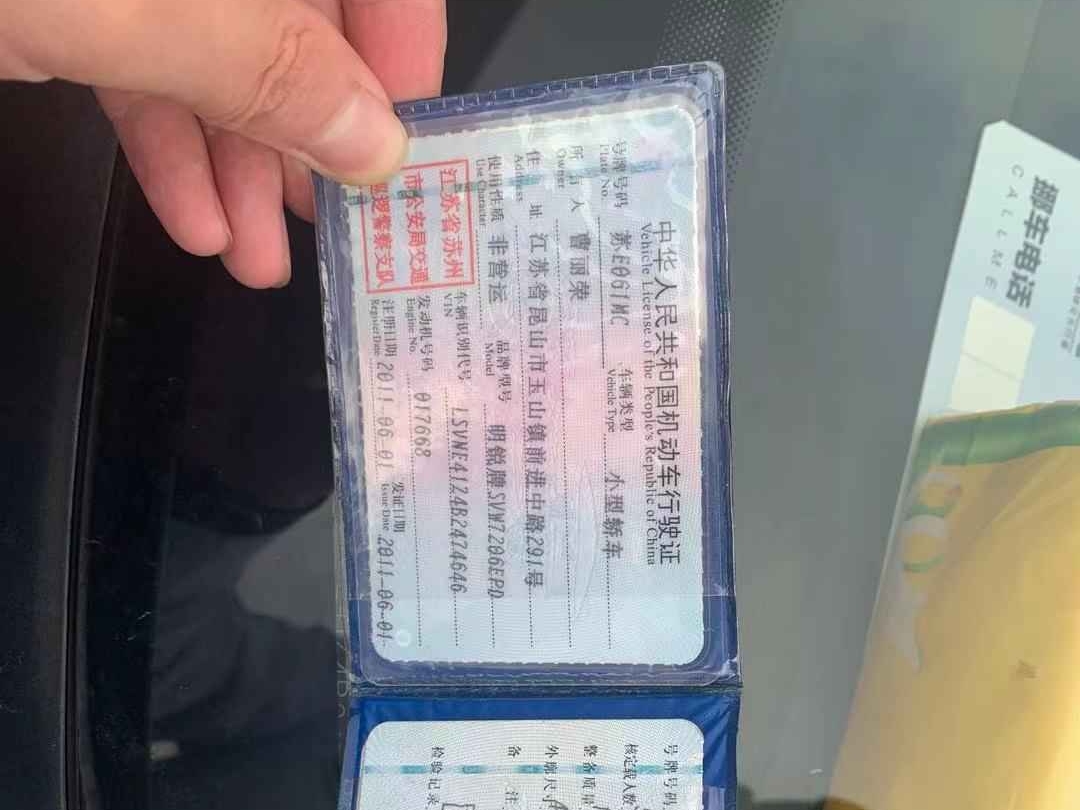 中华人民共和国机动车行驶证
Vehicle License of the People's Republic of China
号牌号码 苏E061MC 车辆类型 小型轿车
Plate No. Vehicle Type
所有人 曹丽荣
Owner
住址 江苏省昆山市玉山镇前进中路291号
Address
使用性质 非营运 品牌型号 明锐牌SVW7206EPD
Use Character Model
江苏省苏州
市公安局交通
巡逻警察支队
车辆识别代号 LSVNE4124B2474646
VIN
发动机号码 017668
Engine No.
注册日期 2011-06-01 发证日期 2011-06-01
Register Date Issue Date
号牌号码
核定载人数
整备质量
外廓尺寸
备 注
检验记录
挪车电话
CALL ME